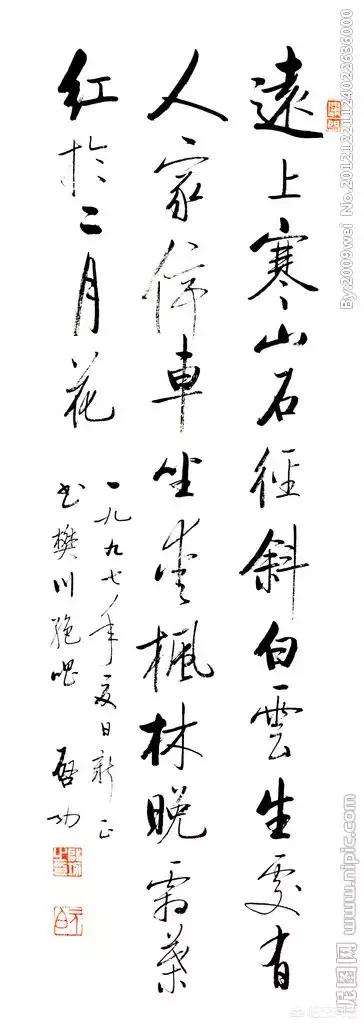 遠上寒山石徑斜白雲生處有
人家停車坐愛楓林晚霜葉
紅於二月花
一九九七年夏日新正
書樊川絶唱 啓功
By:2009wei No.20121221124022636000
昵图网 www.nipic.com